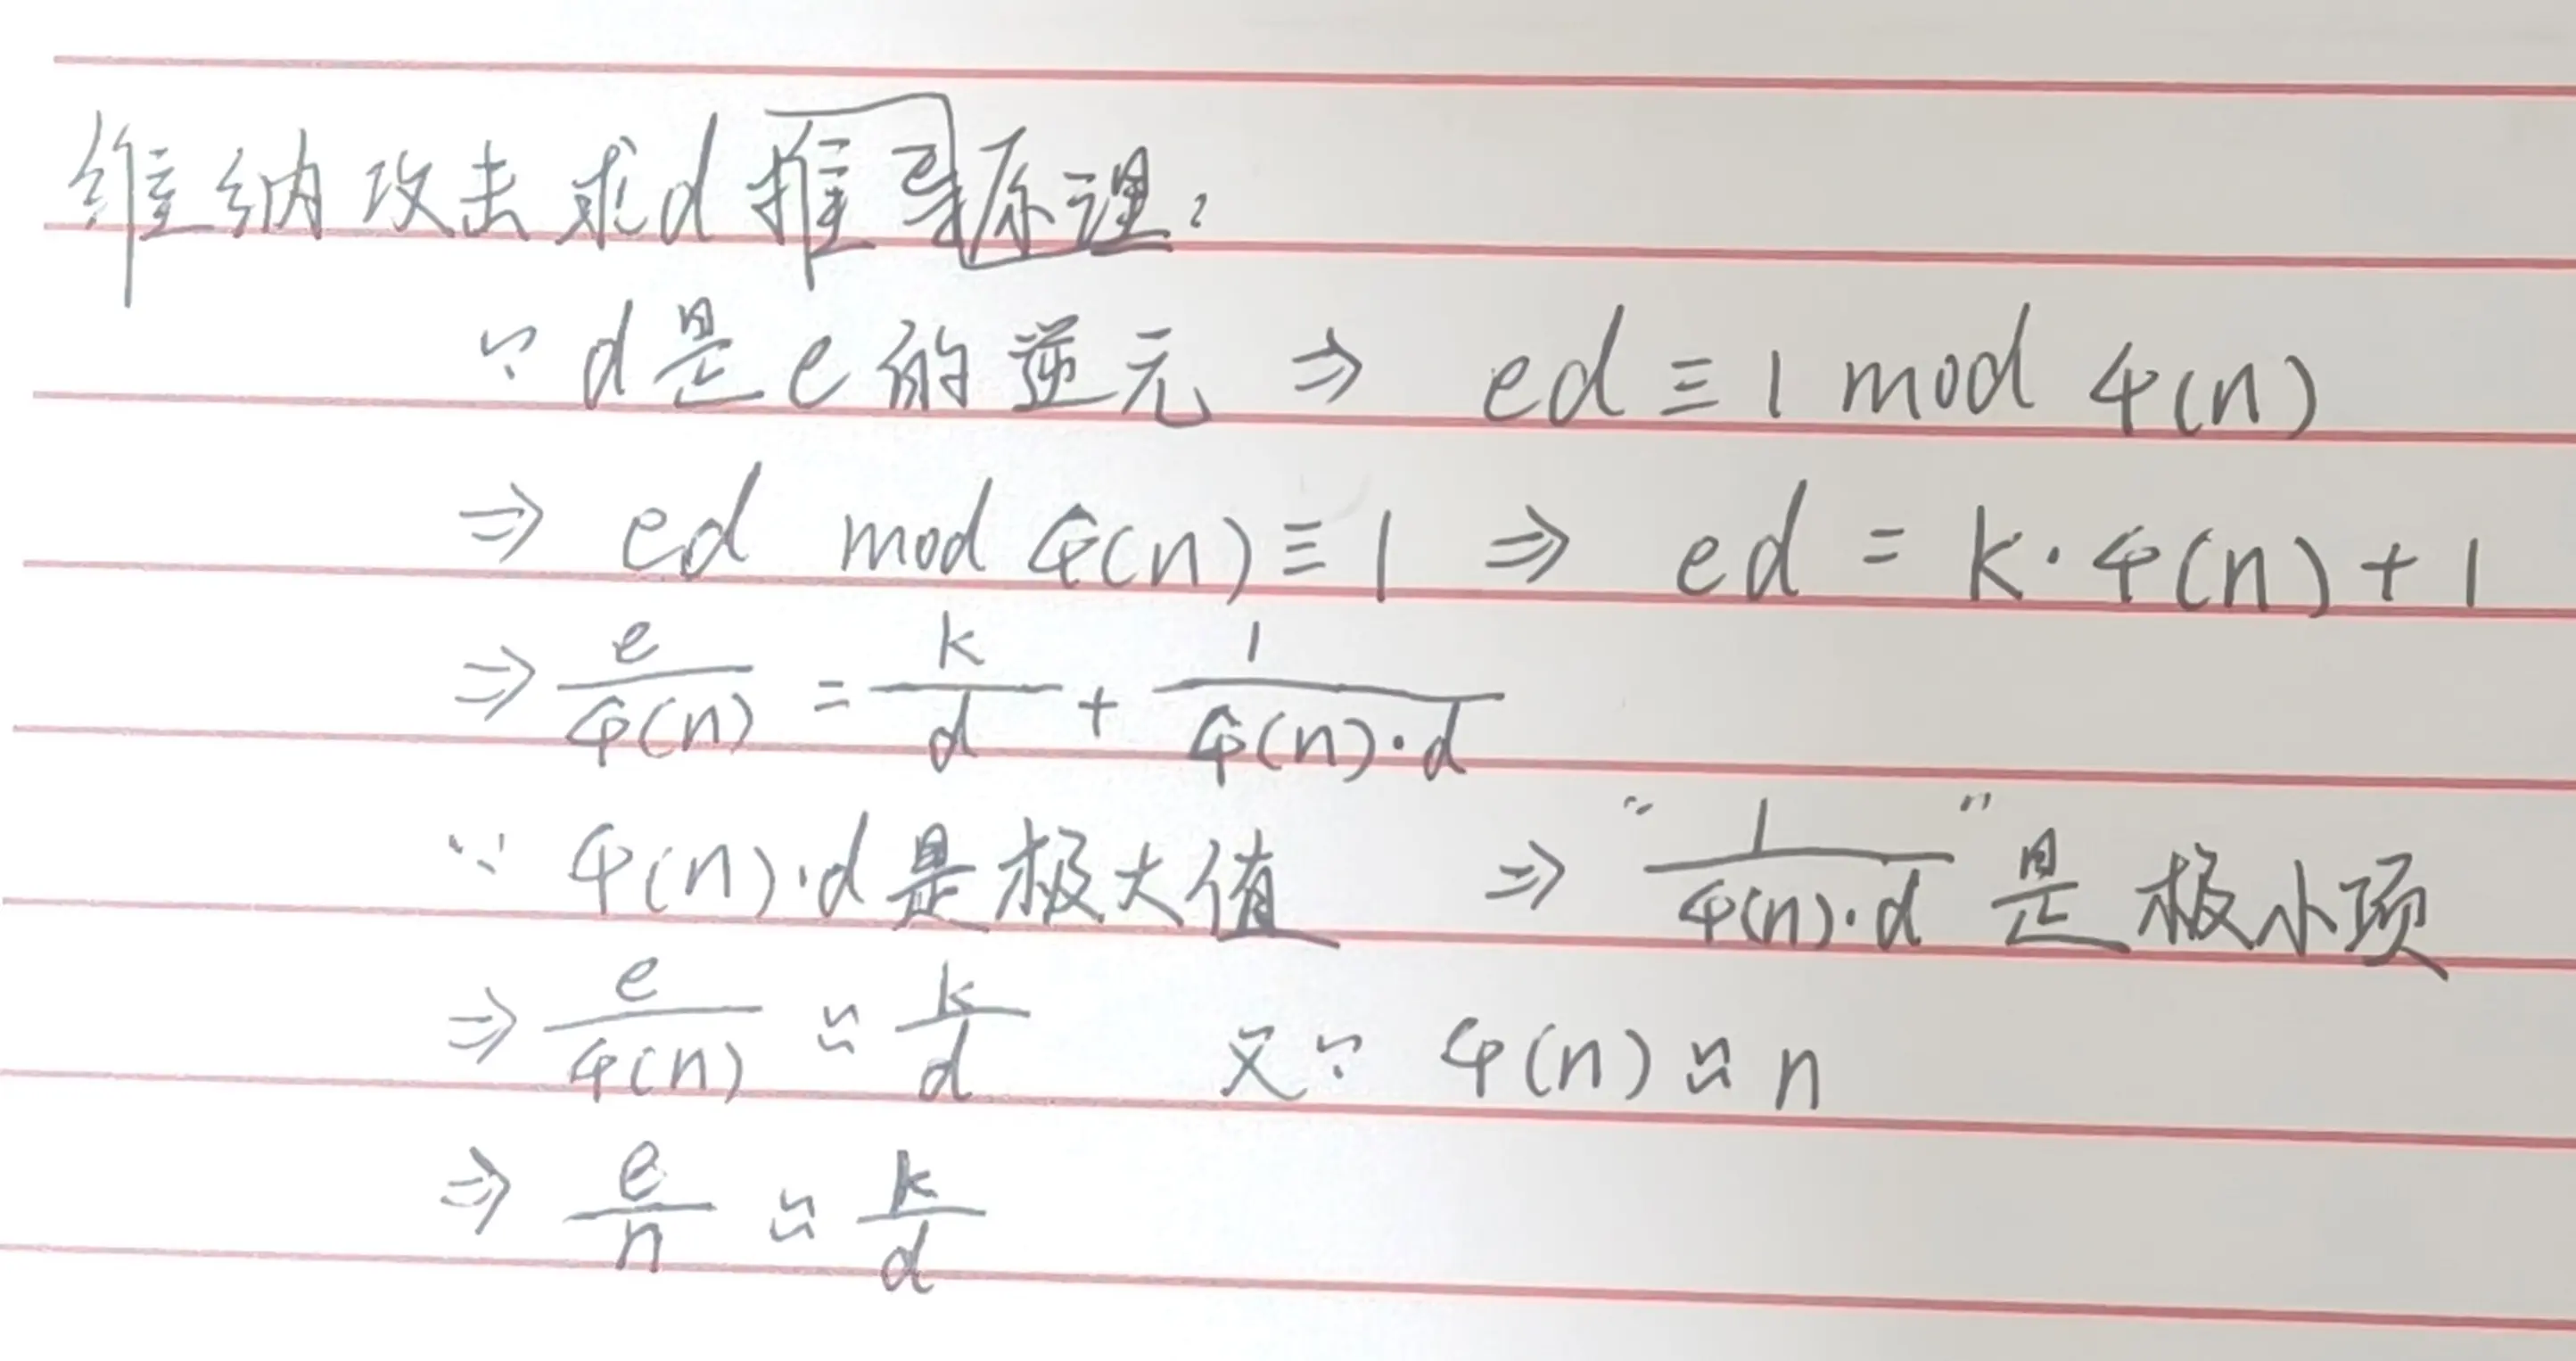 维纳攻击求d推导原理:
∵ d是e的逆元 ⇒ ed ≡ 1 mod φ(n)
⇒ ed mod φ(n) ≡ 1 ⇒ ed = k·φ(n)+1
⇒ e/φ(n) = k/d + 1/φ(n)·d
∵ φ(n)·d是极大值 ⇒ “1/φ(n)·d”是极小项
⇒ e/φ(n) ≈ k/d 又∵ φ(n) ≈ n
⇒ e/n ≈ k/d